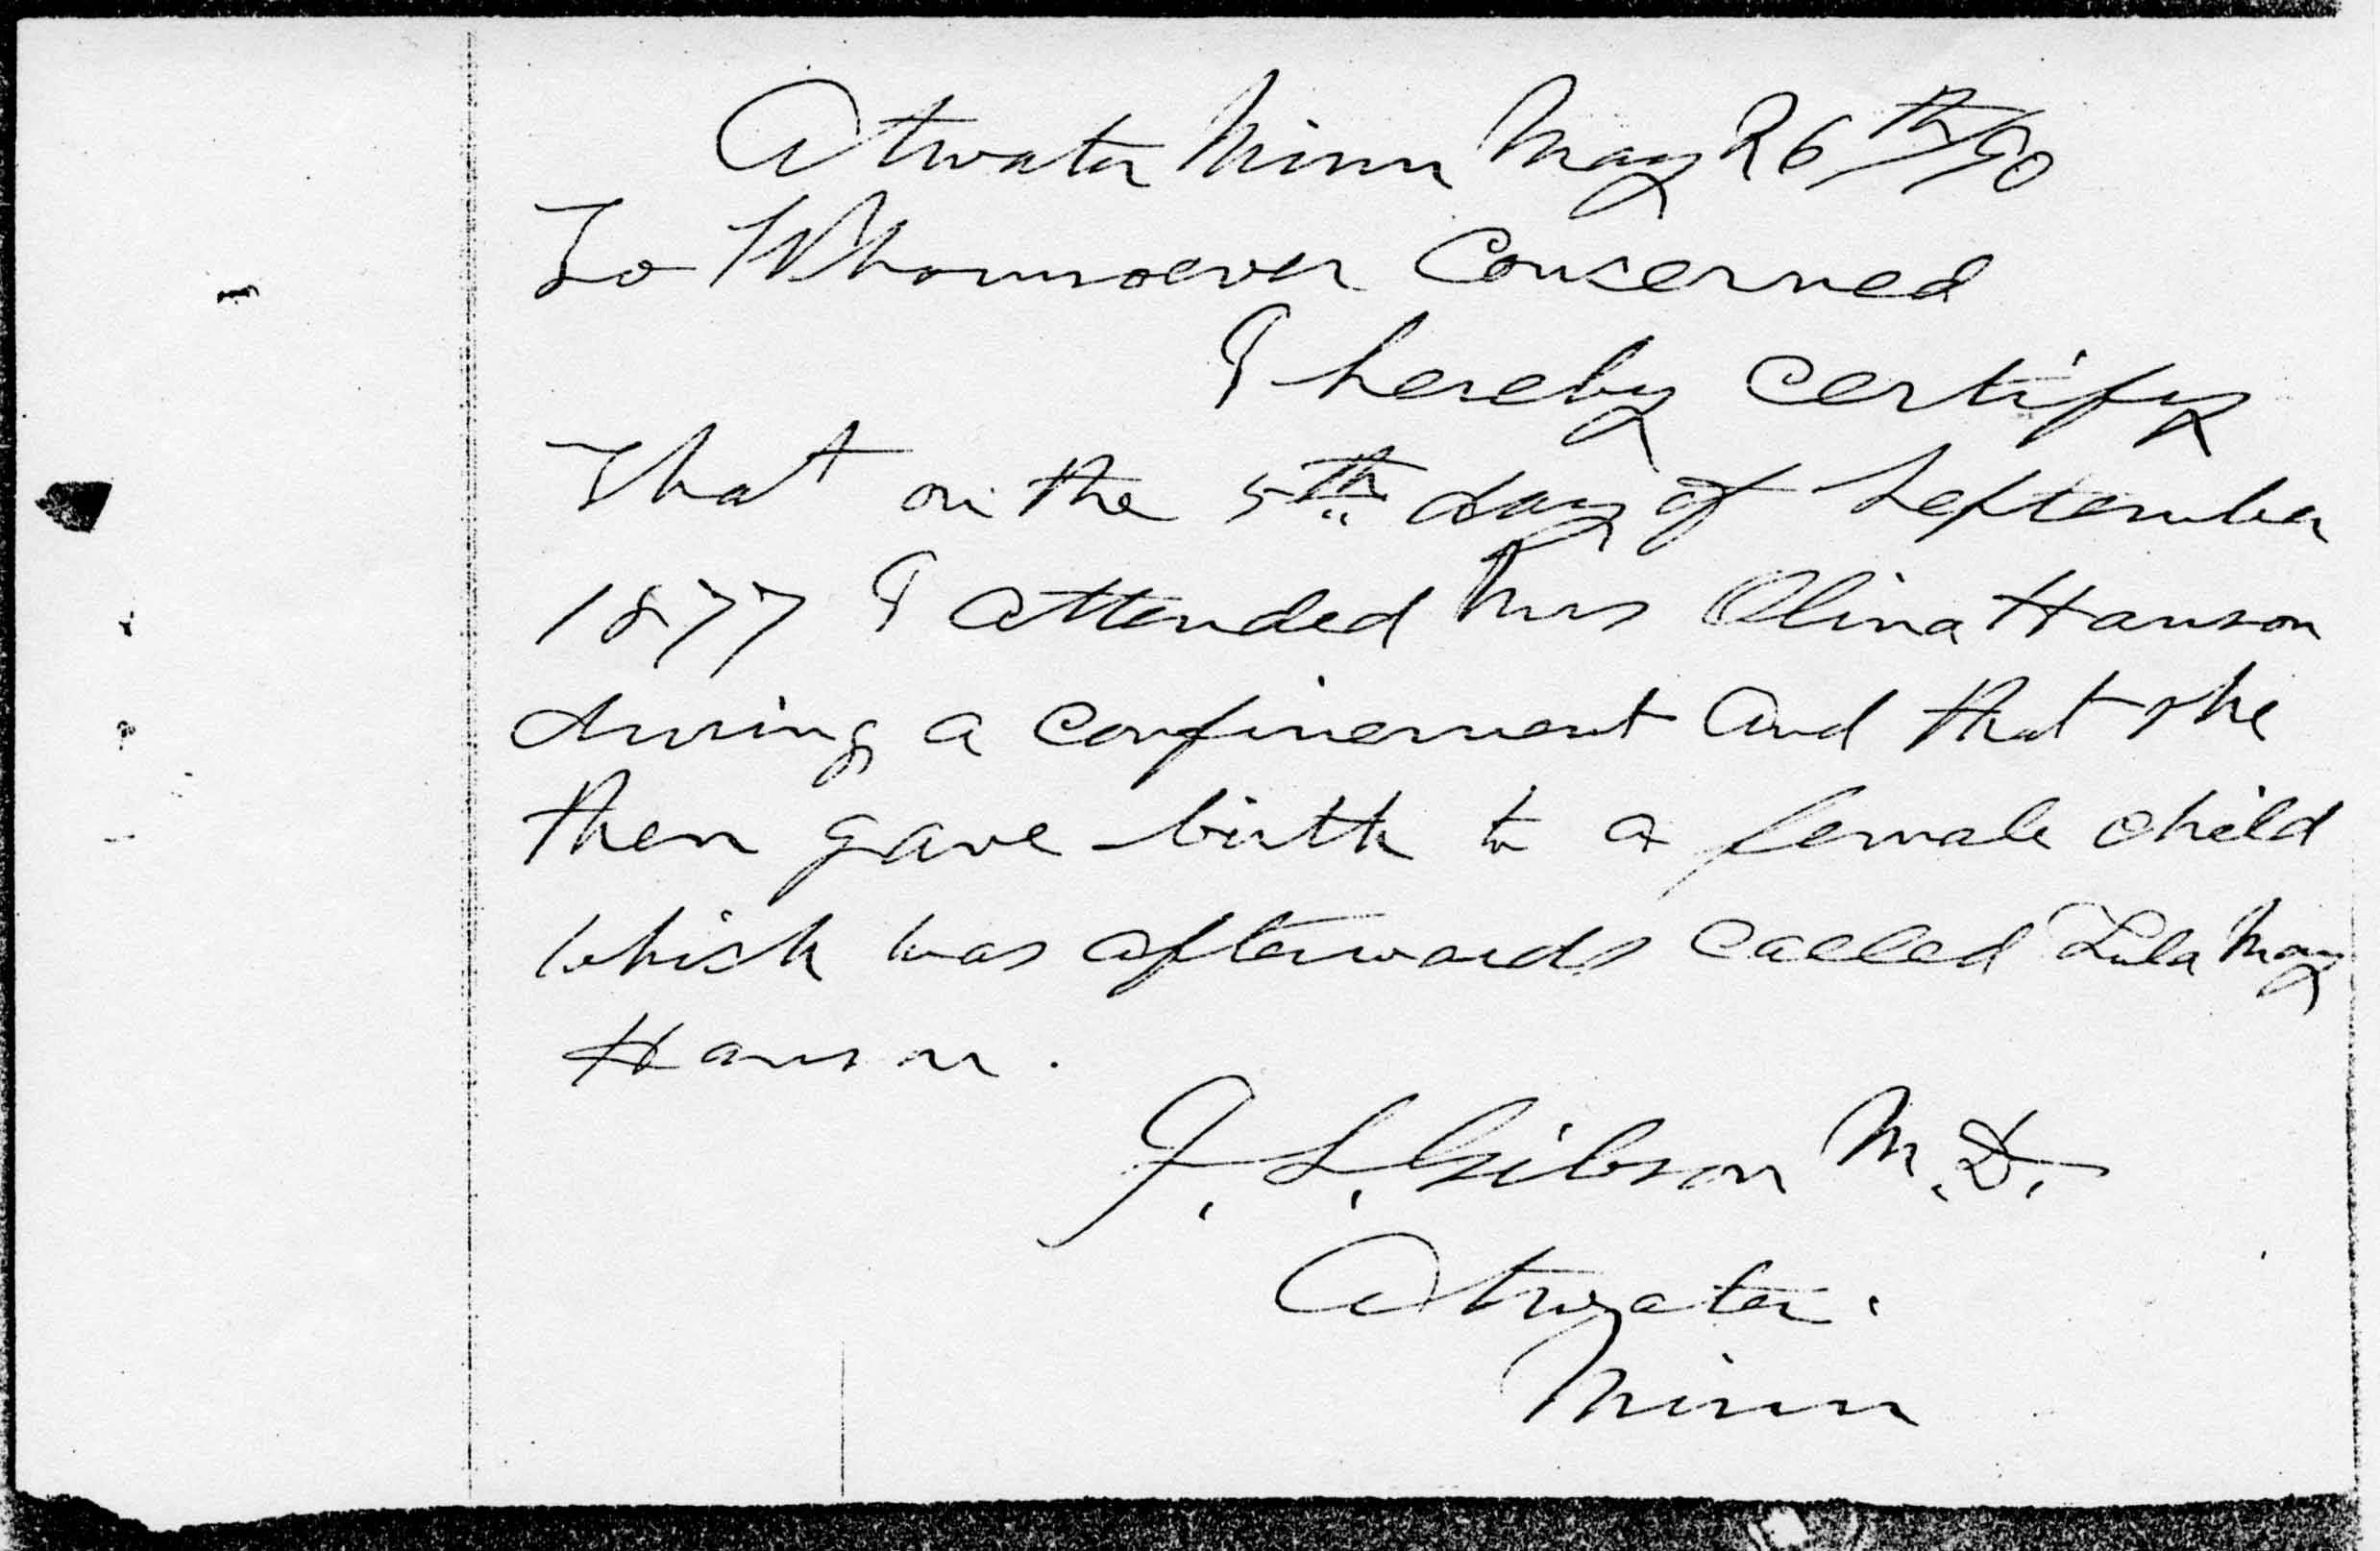 Atwater Minn May 26th/90
To Whomsoever Concerned
I hereby certify
That on the 5th day of September
1877 I attended Mrs Olina Hanson
during a confinement and that she
then gave birth to a female child
which was afterwards called Lula May
Hanson.
J. L. Gibson M.D.
Atwater.
Minn